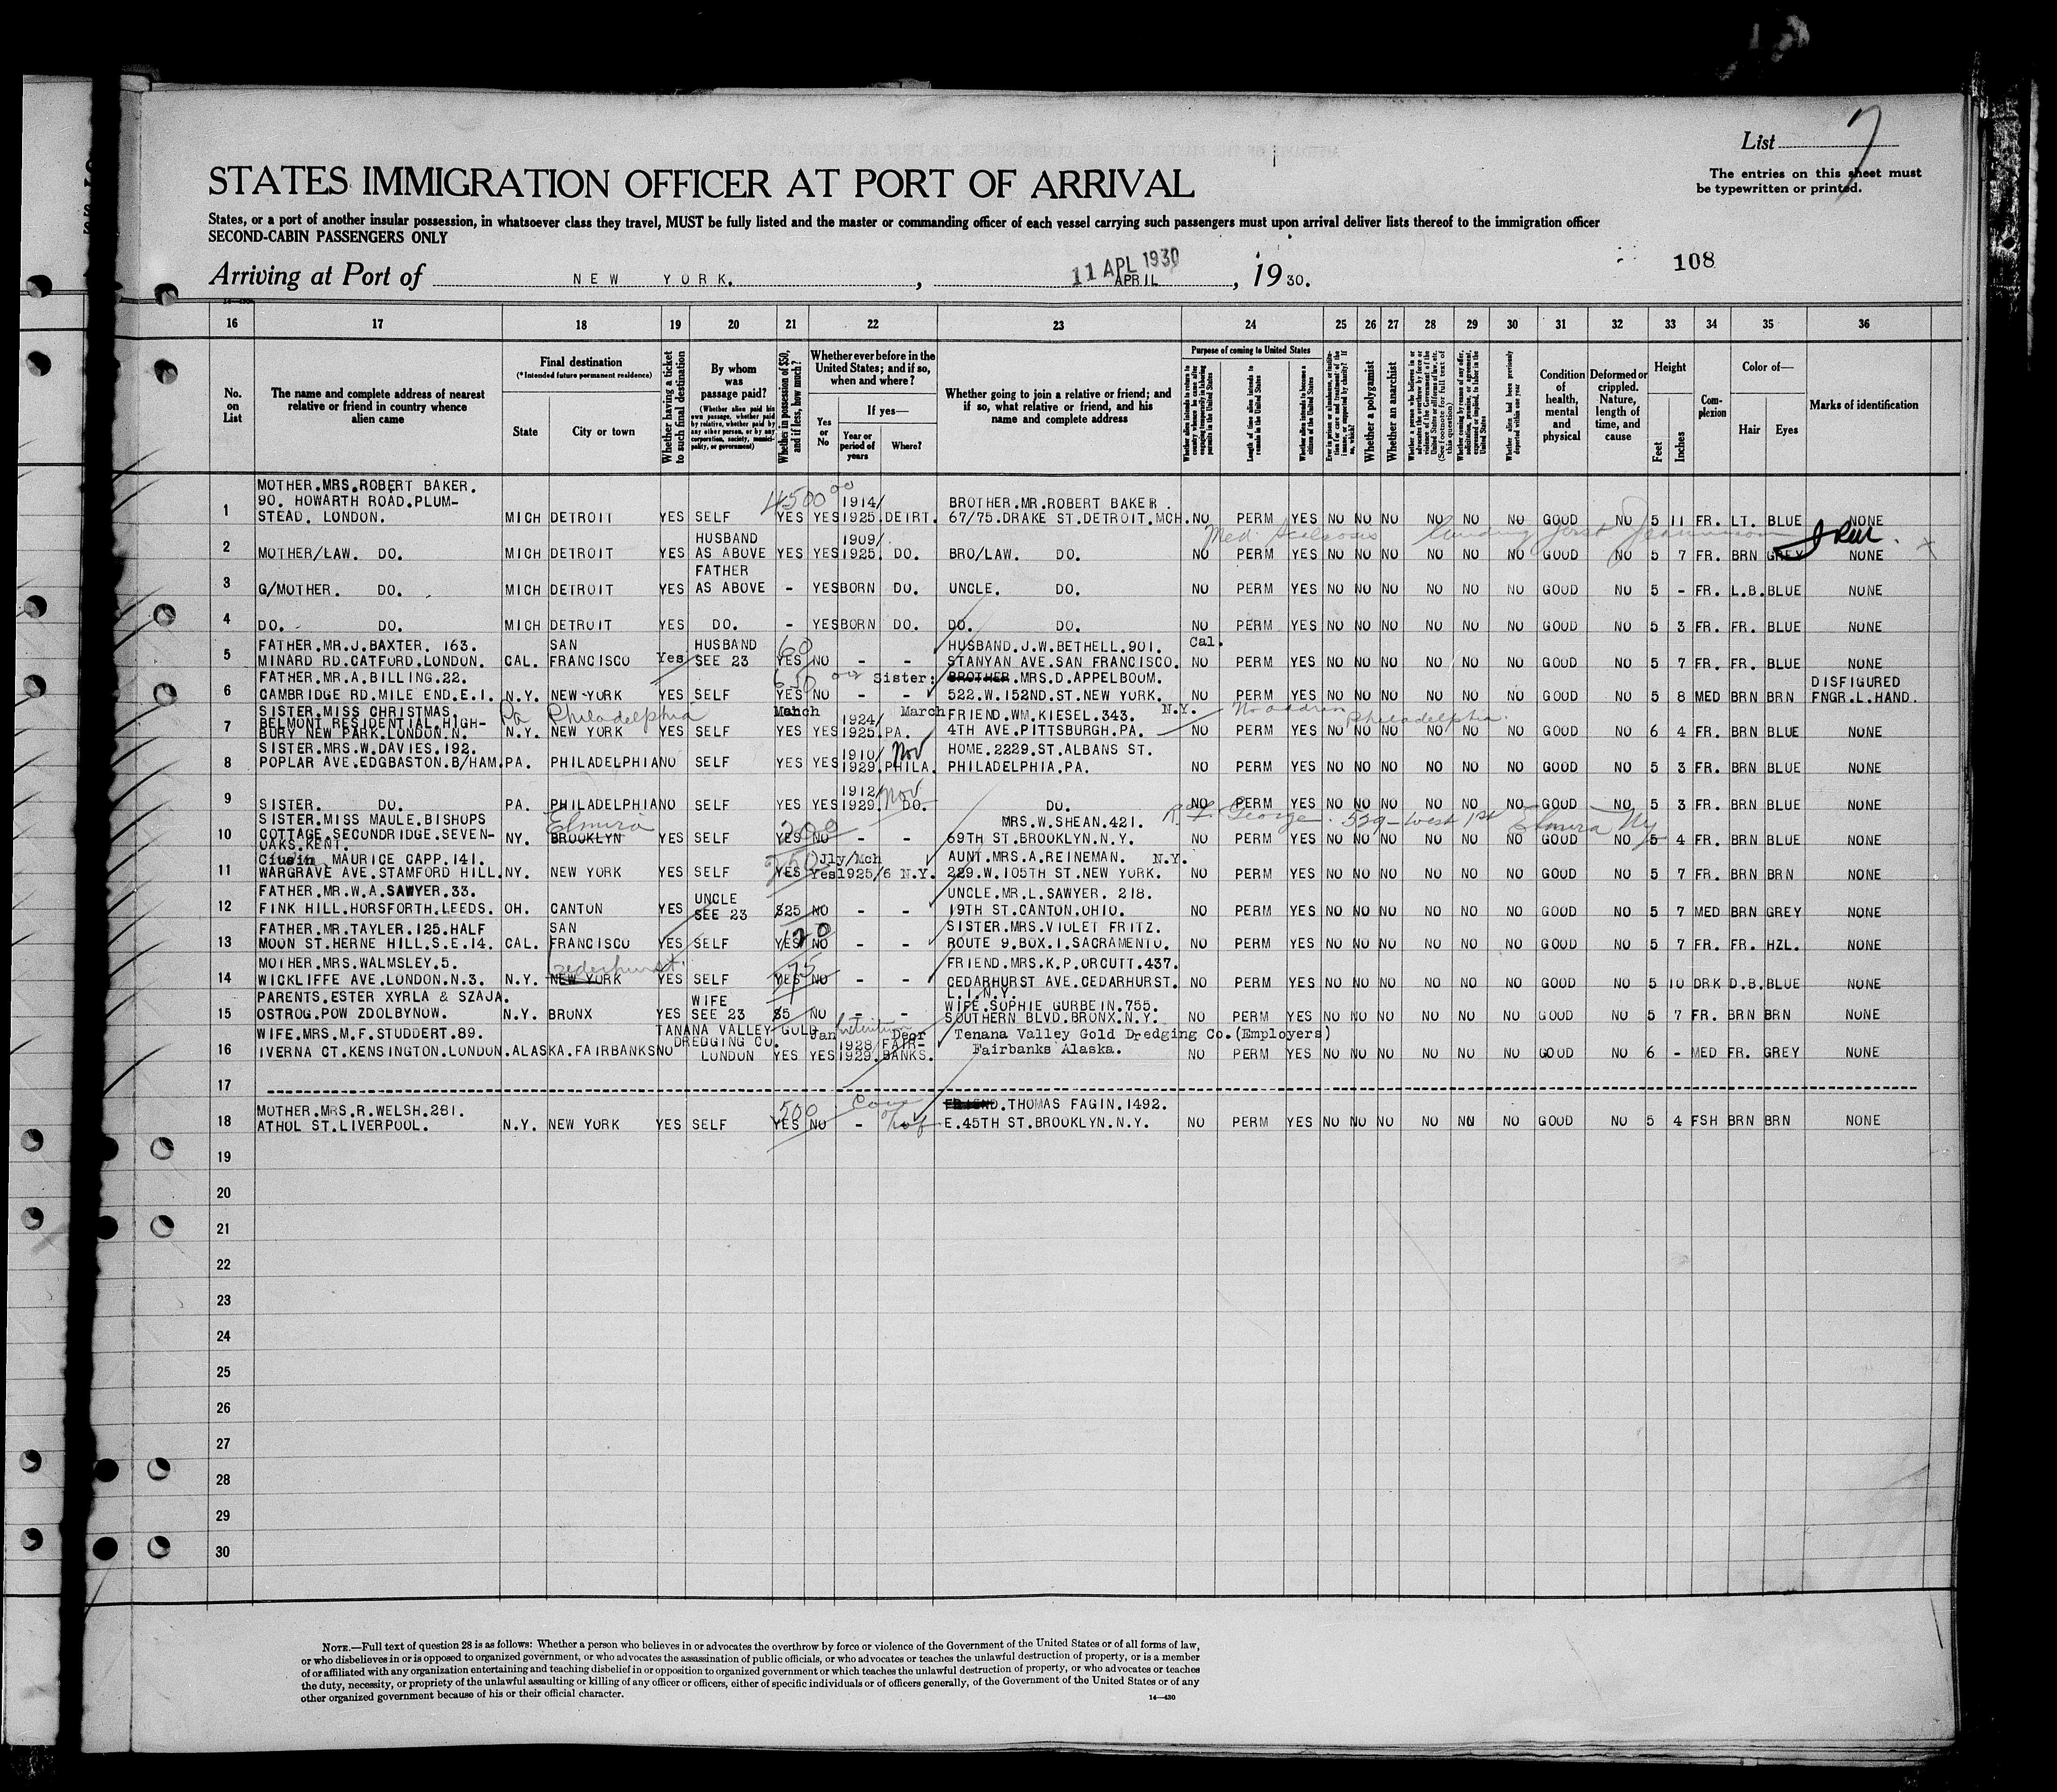 List 7
The entries on this sheet must
be typewritten or printed.
STATES IMMIGRATION OFFICER AT PORT OF ARRIVAL
States, or a port of another insular possession, in whatsoever class they travel, MUST be fully listed and the master or commanding officer of each vessel carrying such passengers must upon arrival deliver lists thereof to the immigration officer
SECOND-CABIN PASSENGERS ONLY
108
Arriving at Port of NEW YORK. , 11 APL 1930 APRIL , 1930.
16 17 18 19 20 21 22 23 24 25 26 27 28 29 30 31 32 33 34 35 36
No. on List
The name and complete address of nearest
relative or friend in country whence
alien came
Final destination
(*Intended future permanent residence)
State
City or town
Whether having a ticket to such final destination
By whom was passage paid?
(Whether alien paid his own passage, whether paid by relative, whether paid by any other person, or by any corporation, society, municipality, or government)
Whether in possession of $50, and if less, how much?
Whether ever before in the United States; and if so, when and where?
Yes or No
If yes—
Year or period of years
Where?
Whether going to join a relative or friend; and
if so, what relative or friend, and his
name and complete address
Purpose of coming to United States
Length of time alien intends to remain in the United States
Whether alien intends to become a citizen of the United States
Whether a polygamist
Whether an anarchist
Whether alien had been previously deported within one year
Condition of health, mental and physical
Deformed or crippled. Nature, length of time, and cause
Height
Feet
Inches
Complexion
Color of—
Hair
Eyes
Marks of identification
MOTHER.MRS.ROBERT BAKER. 4500 00 1914/
90. HOWARTH ROAD.PLUM- BROTHER.MR.ROBERT BAKER.
1 STEAD. LONDON. MICH DETROIT YES SELF YES YES 1925. DEIRT. 67/75.DRAKE ST.DETROIT.MCH. NO PERM YES NO NO NO NO NO NO GOOD NO 5 11 FR. LT. BLUE NONE
HUSBAND 1909/
2 MOTHER/LAW. DO. MICH DETROIT YES AS ABOVE YES YES 1925. DO. BRO/LAW. DO. NO PERM YES NO NO NO NO NO NO GOOD NO 5 7 FR. BRN GREY NONE
FATHER
3 G/MOTHER. DO. MICH DETROIT YES AS ABOVE - YES BORN DO. UNCLE. DO. NO PERM YES NO NO NO NO NO NO GOOD NO 5 - FR. L.B. BLUE NONE
4 DO. DO. MICH DETROIT YES DO. - YES BORN DO. DO. DO. NO PERM YES NO NO NO NO NO NO GOOD NO 5 3 FR. FR. BLUE NONE
FATHER.MR.J.BAXTER. 163. SAN HUSBAND 60 HUSBAND.J.W.BETHELL.901. Cal.
5 MINARD RD.CATFORD.LONDON. CAL. FRANCISCO Yes SEE 23 YES NO - - STANYAN AVE.SAN FRANCISCO. NO PERM YES NO NO NO NO NO NO GOOD NO 5 7 FR. FR. BLUE NONE
FATHER.MR.A.BILLING.22. Sister: BROTHER.MRS.D.APPELBOOM. DISFIGURED
6 CAMBRIDGE RD.MILE END.E.I. N.Y. NEW-YORK YES SELF YES NO - - 522.W.152ND.ST.NEW YORK. NO PERM YES NO NO NO NO NO NO GOOD NO 5 8 MED BRN BRN FNGR.L.HAND.
SISTER.MISS CHRISTMAS. Pa Philadelphia March March FRIEND.WM.KIESEL.343. N.Y. No address Philadelphia.
BELMONT RESIDENTIAL.HIGH- 1924/
7 BURY NEW PARK.LONDON.N. N.Y. NEW YORK YES SELF YES YES 1925. PA. 4TH AVE.PITTSBURGH.PA. NO PERM YES NO NO NO NO NO NO GOOD NO 6 4 FR. BRN BLUE NONE
SISTER.MRS.W.DAVIES.192. 1910/ Nov HOME.2229.ST.ALBANS ST.
8 POPLAR AVE.EDGBASTON.B/HAM. PA. PHILADELPHIA NO SELF YES YES 1929. PHILA. PHILADELPHIA.PA. NO PERM YES NO NO NO NO NO NO GOOD NO 5 3 FR. BRN BLUE NONE
1912/ Nov
9 SISTER. DO. PA. PHILADELPHIA NO SELF YES YES 1929. DO. DO. NO PERM YES NO NO NO NO NO NO GOOD NO 5 3 FR. BRN BLUE NONE
SISTER.MISS MAULE.BISHOPS Elmira 200 MRS.W.SHEAN.421. George. 529-West 1st Elmira Ny
10 COTTAGE.SECONDRIDGE.SEVEN- NY. BROOKLYN YES SELF YES NO - - 69TH ST.BROOKLYN.N.Y. NO PERM YES NO NO NO NO NO NO GOOD NO 5 4 FR. BRN BLUE NONE
OAKS.KENT.
MAURICE CAPP.141. 250 Jly/Mch AUNT.MRS.A.REINEMAN. N.Y.
11 WARGRAVE AVE.STAMFORD HILL. NY. NEW YORK YES SELF YES Yes 1925/6 N.Y. 229.W.105TH ST.NEW YORK. NO PERM YES NO NO NO NO NO NO GOOD NO 5 7 FR. BRN BRN NONE
FATHER.MR.W.A.SAWYER.33. UNCLE UNCLE.MR.L.SAWYER. 218.
12 FINK HILL.HORSFORTH.LEEDS. OH. CANTON YES SEE 23 $25 NO - - 19TH ST.CANTON.OHIO. NO PERM YES NO NO NO NO NO NO GOOD NO 5 7 MED BRN GREY NONE
FATHER.MR.TAYLER.125.HALF SAN 120 SISTER.MRS.VIOLET FRITZ.
13 MOON ST.HERNE HILL.S.E.14. CAL. FRANCISCO YES SELF YES NO - - ROUTE 9.BOX.1.SACRAMENTO. NO PERM YES NO NO NO NO NO NO GOOD NO 5 7 FR. FR. HZL. NONE
MOTHER.MRS.WALMSLEY.5. Cedarhurst. 75 FRIEND.MRS.K.P.ORCUTT.437.
14 WICKLIFFE AVE.LONDON.N.3. N.Y. NEW YORK YES SELF YES NO - - CEDARHURST AVE.CEDARHURST. NO PERM YES NO NO NO NO NO NO GOOD NO 5 10 DRK D.B. BLUE NONE
L.I.N.Y.
PARENTS.ESTER XYRLA & SZAJA. WIFE WIFE.SOPHIE GURBEIN.755.
15 OSTROG.POW ZDOLBYNOW. N.Y. BRONX YES SEE 23 $5 NO - - SOUTHERN BLVD.BRONX.N.Y. NO PERM YES NO NO NO NO NO NO GOOD NO 5 7 FR. BRN BRN NONE
WIFE.MRS.M.F.STUDDERT.89. TANANA VALLEY GOLD Jan Tenana Valley Gold Dredging Co.(Employers)
DREDGING CO. 1928/ FAIR-
16 IVERNA CT.KENSINGTON.LONDON. ALASKA.FAIRBANKS NO LONDON YES YES 1929. BANKS. Fairbanks Alaska. NO PERM YES NO NO NO NO NO NO GOOD NO 6 - MED FR. GREY NONE
17
MOTHER.MRS.R.WELSH.281. 500 FRIEND.THOMAS FAGIN.1492.
18 ATHOL ST.LIVERPOOL. N.Y. NEW YORK YES SELF YES NO - E.45TH ST.BROOKLYN.N.Y. NO PERM YES NO NO NO NO NO NO GOOD NO 5 4 FSH BRN BRN NONE
19
20
21
22
23
24
25
26
27
28
29
30
NOTE.—Full text of question 28 is as follows: Whether a person who believes in or advocates the overthrow by force or violence of the Government of the United States or of all forms of law,
or who disbelieves in or is opposed to organized government, or who advocates the assassination of public officials, or who advocates or teaches the unlawful destruction of property, or is a member
of or affiliated with any organization entertaining and teaching disbelief in or opposition to organized government or which teaches the unlawful destruction of property, or who advocates or teaches
the duty, necessity, or propriety of the unlawful assaulting or killing of any officer or officers, either of specific individuals or of officers generally, of the Government of the United States or of any
other organized government because of his or their official character.
14—430